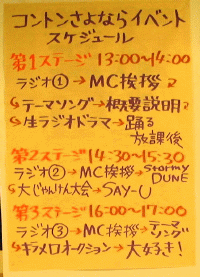 コントンさよならイベント
スケジュール
第1ステージ 13:00〜14:00
ラジオ①→MC挨拶
→テーマソング→概要説明
→生ラジオドラマ→踊る
放課後
第2ステージ 14:30〜15:30
ラジオ②→MC挨拶→STORMY
DUNE
→大じゃんけん大会→SAY-U
第3ステージ 16:00〜17:00
ラジオ③→MC挨拶→テーマ
ソング
→キラメロオークション→大好き!